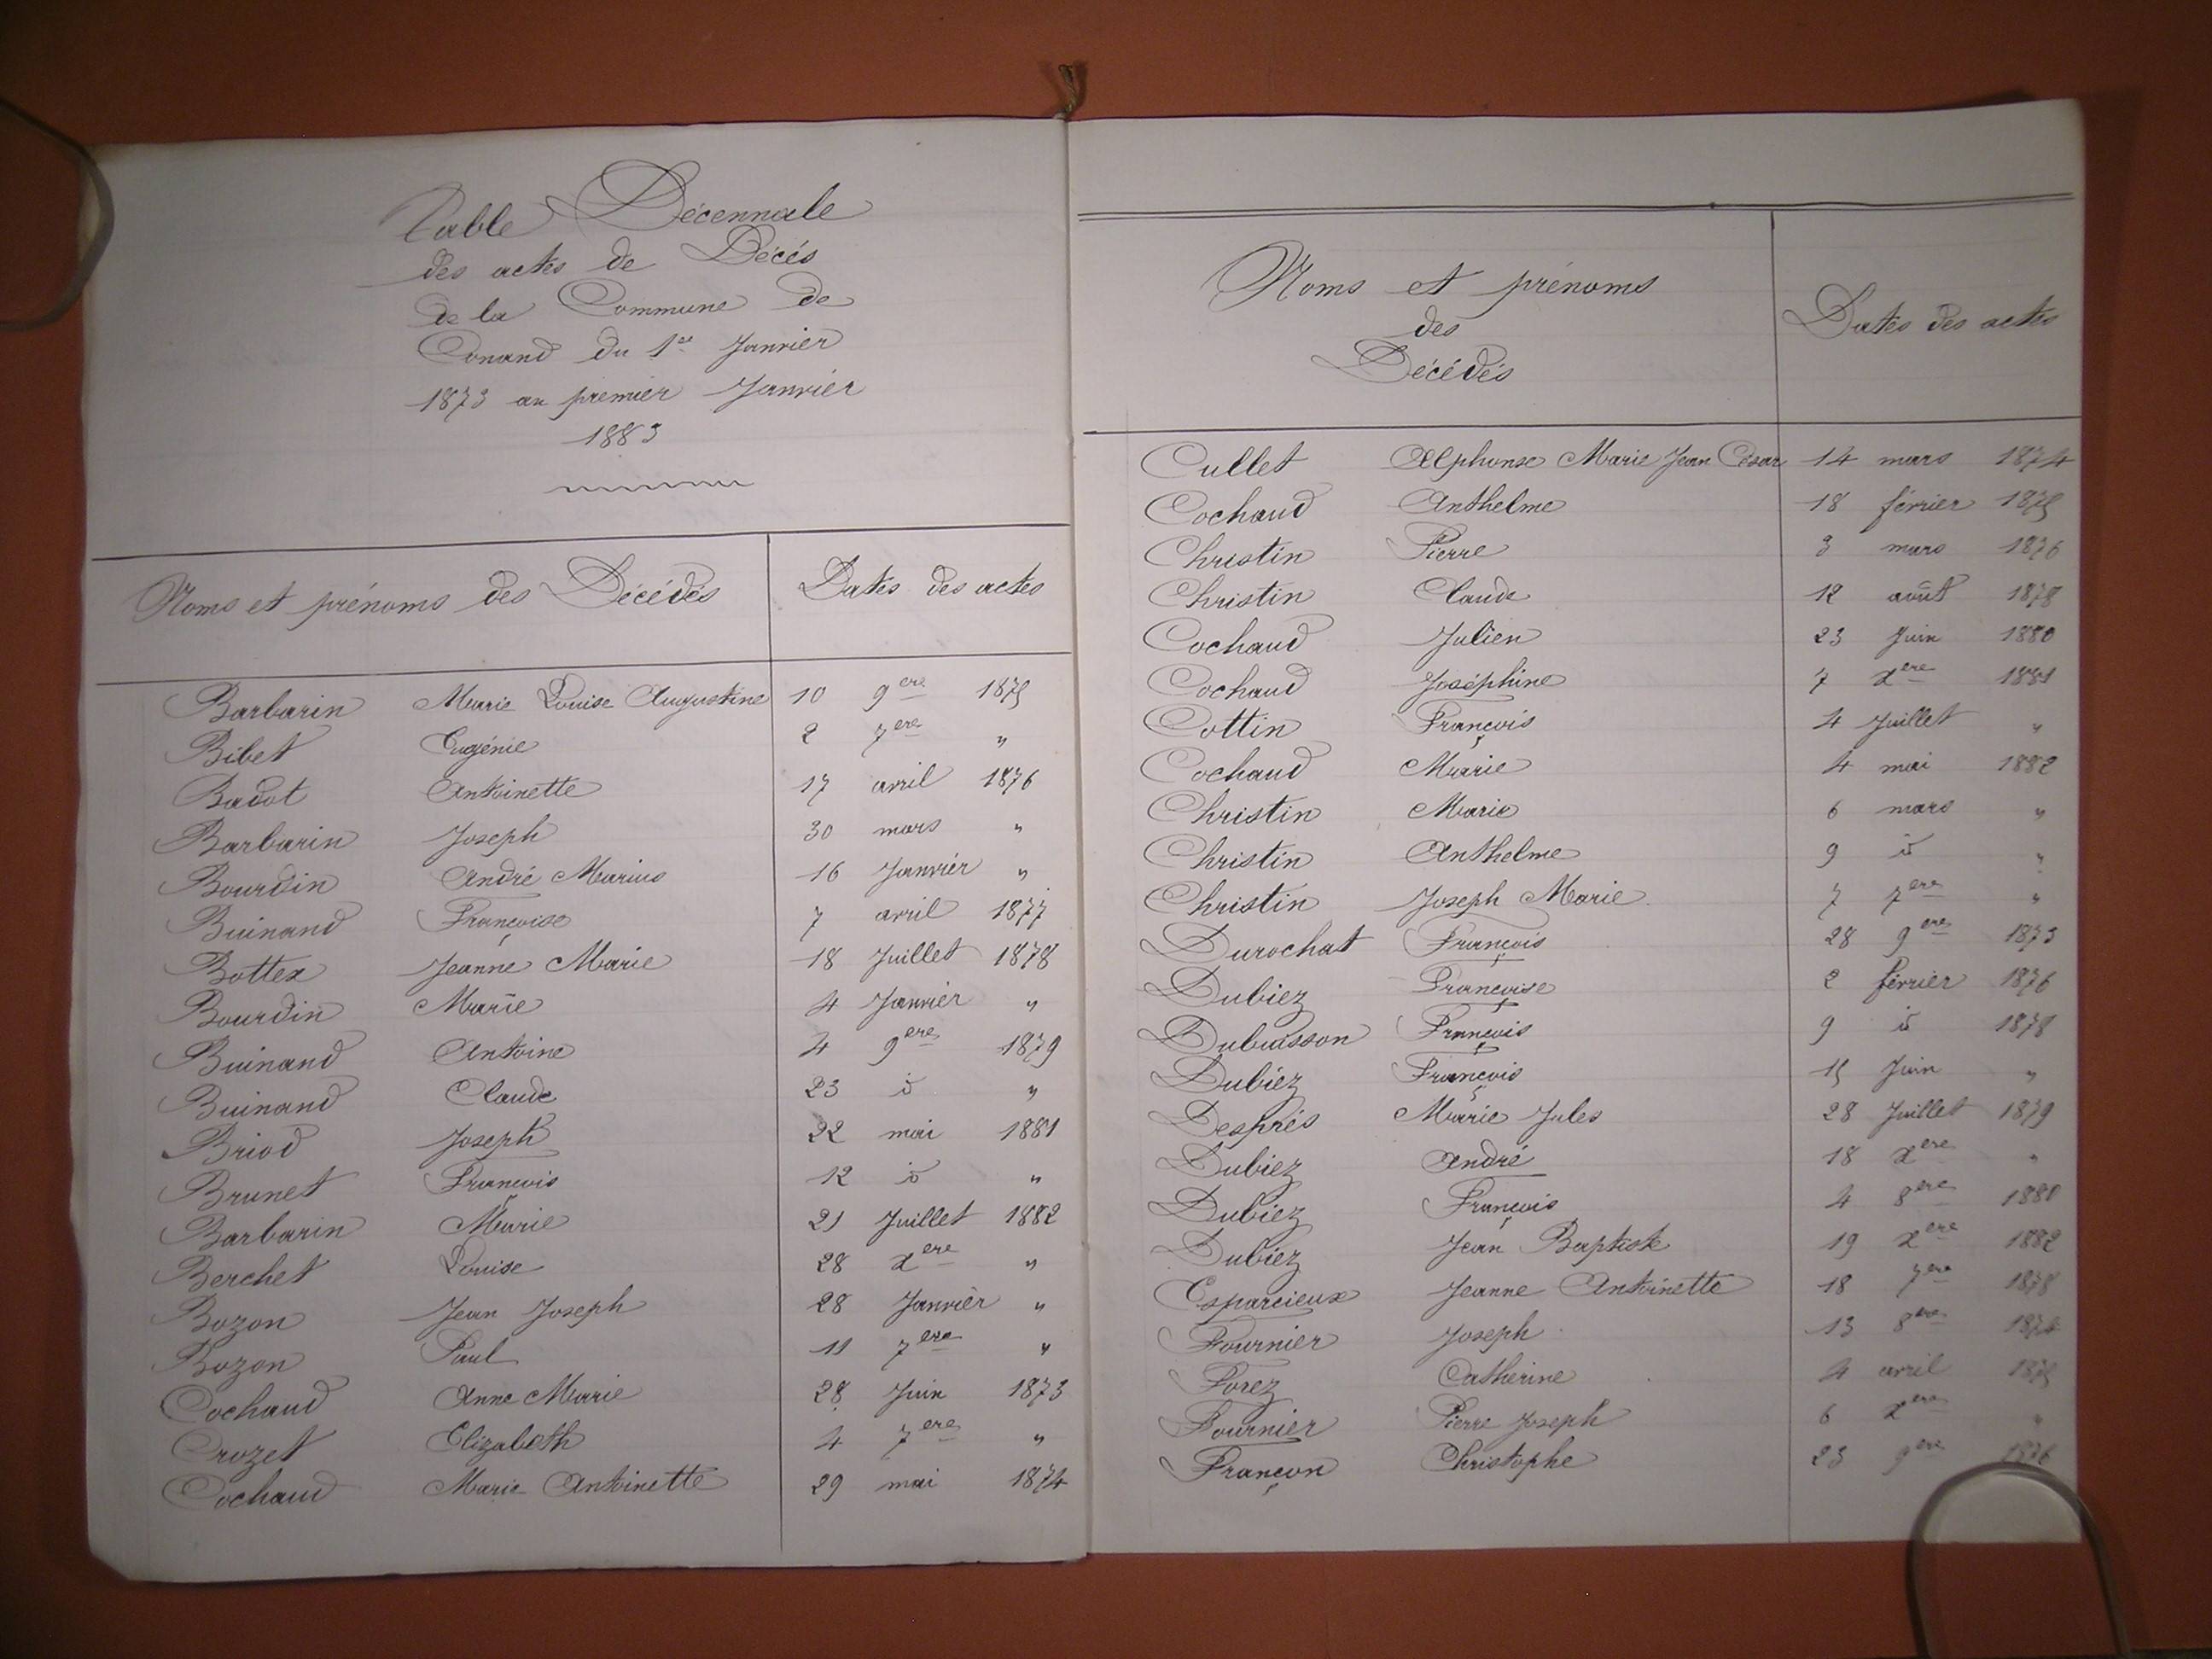 Table Décennale
des actes de Décès
de la Commune de
Conand du 1er Janvier
1873 au premier Janvier
1883
Noms et prénoms des Décédés Dates des actes
Barbarin Marie Louise Augustine 10 9ere 1875
Bibet Eugénie 2 7ere "
Badot Antoinette 17 avril 1876
Barbarin Joseph 30 mars "
Bourdin André Marius 16 Janvier "
Buinand Françoise 7 avril 1877
Bottex Jeanne Marie 18 Juillet 1878
Bourdin Marie 4 Janvier "
Buinand Antoine 4 9ere 1879
Buinand Claude 23 id "
Briod Joseph 22 mai 1881
Brunet François 12 id "
Barbarin Marie 21 Juillet 1882
Berchet Louise 28 Xere "
Bozon Jean Joseph 28 Janvier "
Bozon Paul 11 7ere "
Cochaud Anne Marie 28 Juin 1873
Crozet Elizabeth 4 7ere "
Cochaud Marie Antoinette 29 mai 1874
Noms et prénoms
des
Décédés
Dates des actes
Cullet Alphonse Marie Jean César 14 mars 1874
Cochaud Anthelme 18 février 1875
Christin Pierre 3 mars 1876
Christin Claude 12 août 1878
Cochaud Julien 23 Juin 1880
Cochaud Joséphine 7 Xere 1881
Cottin François 4 Juillet "
Cochaud Marie 4 mai 1882
Christin Marie 6 mars "
Christin Anthelme 9 id "
Christin Joseph Marie 7 7ere "
Durochat François 28 9ere 1873
Dubiez Françoise 2 février 1876
Dubuisson François 9 id 1878
Dubiez François 15 Juin "
Després Marie Jules 28 Juillet 1879
Dubiez André 18 Xere "
Dubiez François 4 8ere 1880
Dubiez Jean Baptiste 19 Xere 1882
Esparcieux Jeanne Antoinette 18 7ere 1878
Fournier Joseph 13 8ere 1874
Forez Catherine 4 avril 1875
Fournier Pierre Joseph 6 Xere "
Françon Christophe 23 9ere 1876